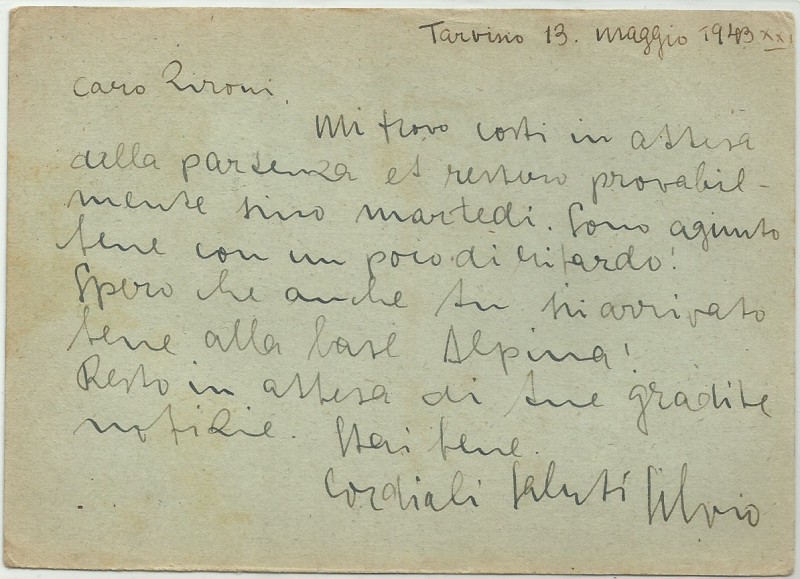 Tarviso 13. maggio 1943 XXI
Caro Zironi,
Mi trovo costi in attesa
della partenza et restero provabil-
mente sino martedi. Sono agiunto
bene con un poco di ritardo!
Spero che anche tu sii arrivato
bene alla base Alpina!
Resto in attesa di tue gradite
notizie. Stai bene.
Cordiali Saluti Silvio